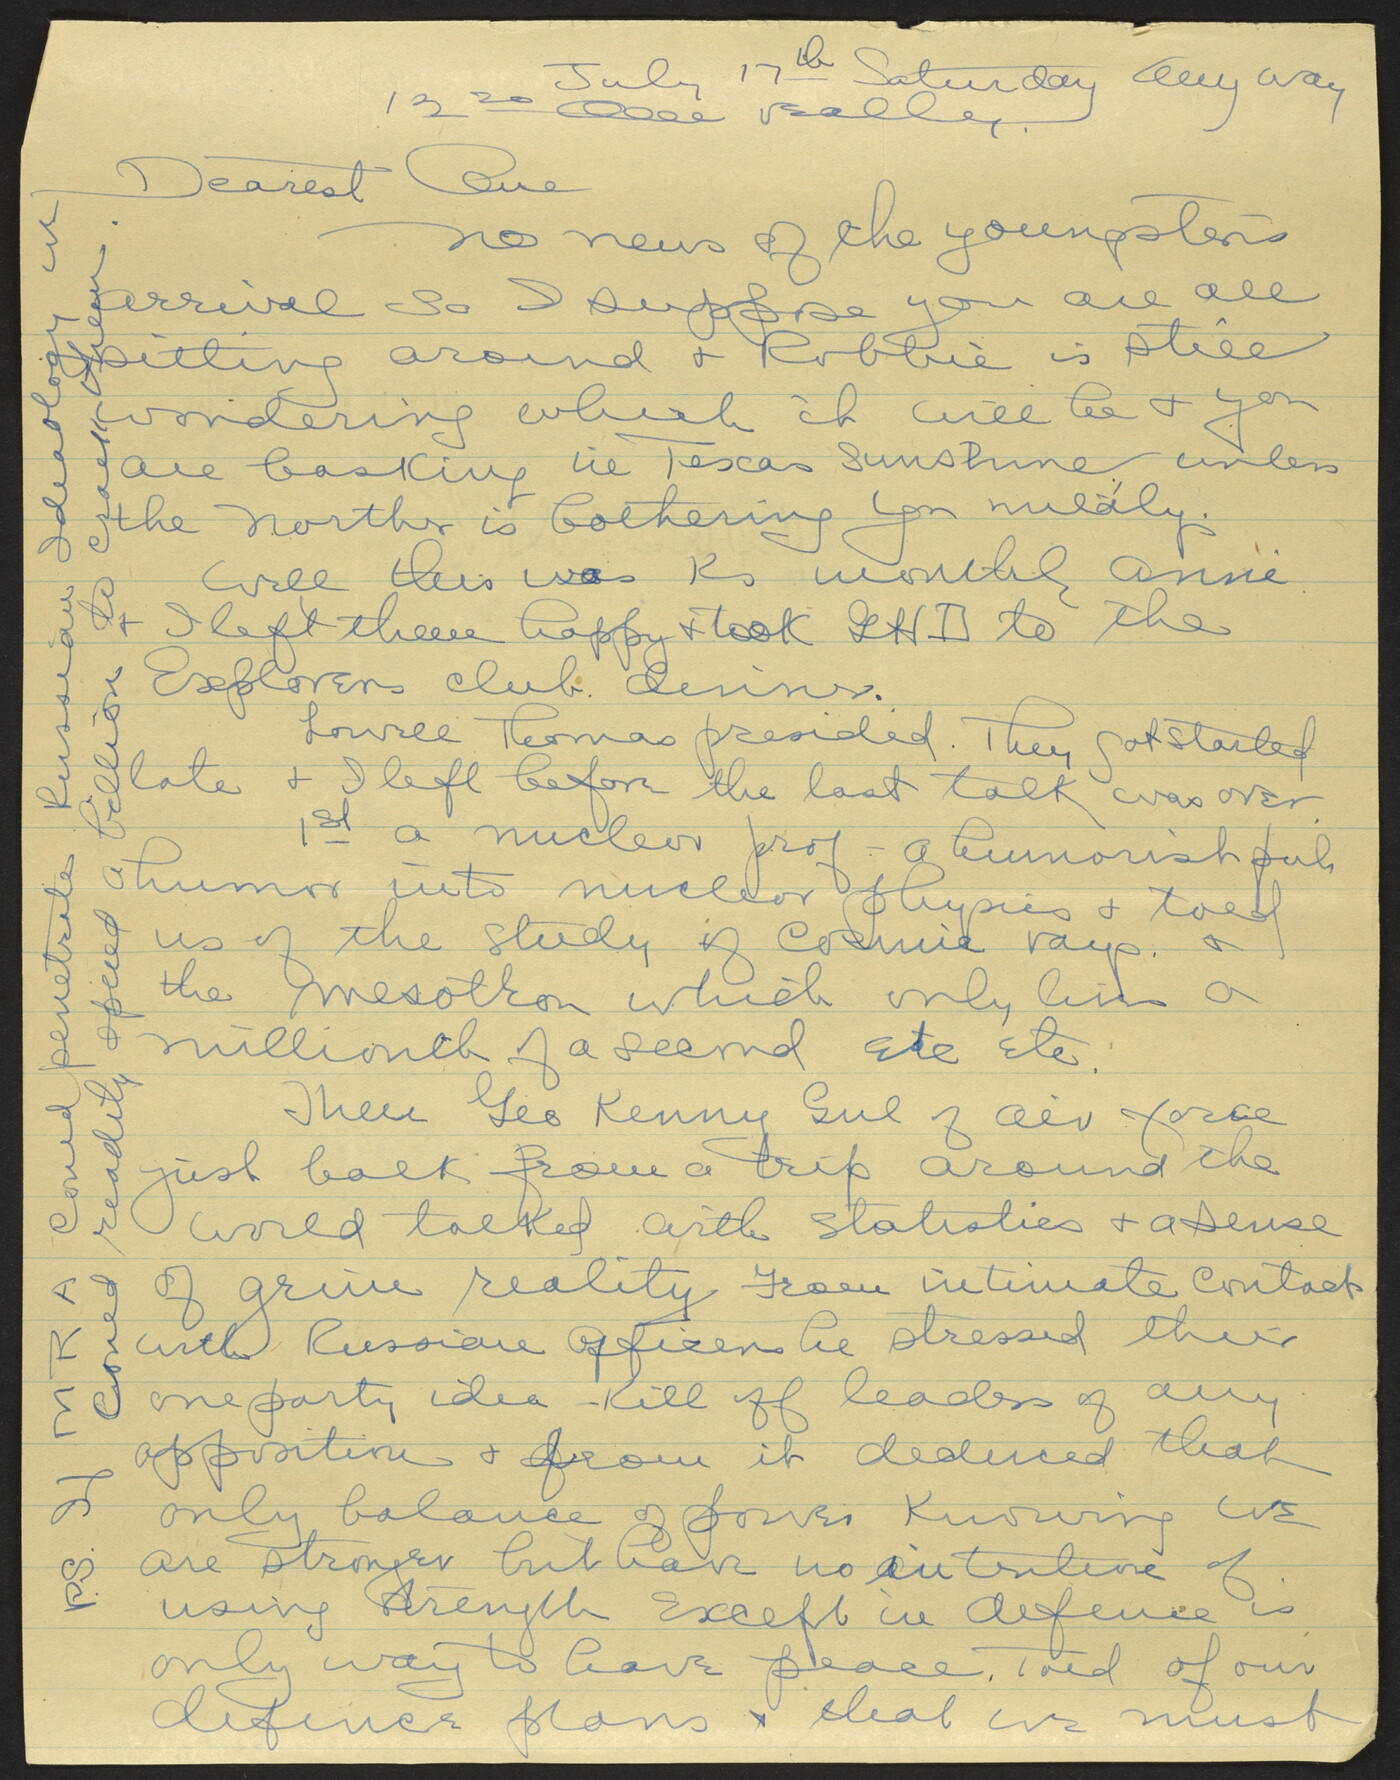 July 17th Saturday any way
12 20 really.
Dearest One
No news of the youngsters
arrival so I suppose you are all
sitting around & Robbie is still
wondering which it will be & you
are basking in Texas Sunshine unless
the Norther is bothering you mildly.
Well this was Ks monthly Annie
& I left them happy & took GHD to the
Explorers club. dinner.
Lowell Thomas presided. They got started
late & I left before the last talk was over.
1st a nuclear prof - a humorist put
humor into nuclear physics & told
us of the study of Cosmic rays. &
the mesotron which only lives a
millionth of a second Etc Etc.
Then Geo Kenny Gnl of air force
just back from a trip around the
world talked with statistics & a sense
of grim reality From intimate contact
with Russian officers he stressed their
one party idea - Kill off leaders of any
opposition & from it deduced that
only balance of power Knowing we
are stronger but have no intention of
using strength Except in defence is
only way to have peace. Told of our
defence plans & that we must
P.S. If M R A Could penetrate Russian Ideaology we
Could readily spend a billion to crack them.